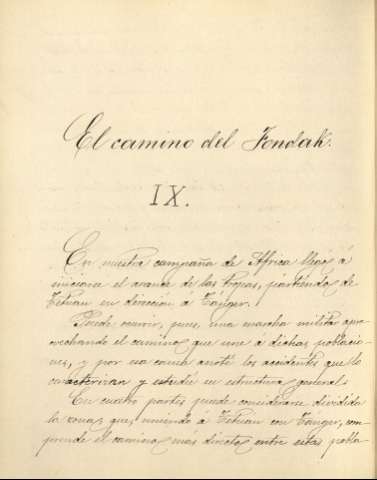 El camino del Fondak.
IX.
En nuestra campaña de Africa llegó á
iniciarse el avance de las tropas, partiendo de
Tetuán en dirección á Tánger.
Puede ocurrir, pues, una marcha militar apro-
vechando el camino que une á dichas poblacio-
nes, y por esa causa anoté los accidentes que le
caracterizan y estudié su estructura general.
En cuatro partes puede considerarse dividida
la zona que, uniendo á Tetuán con Tánger, com-
prende el camino más directo entre estas pobla-